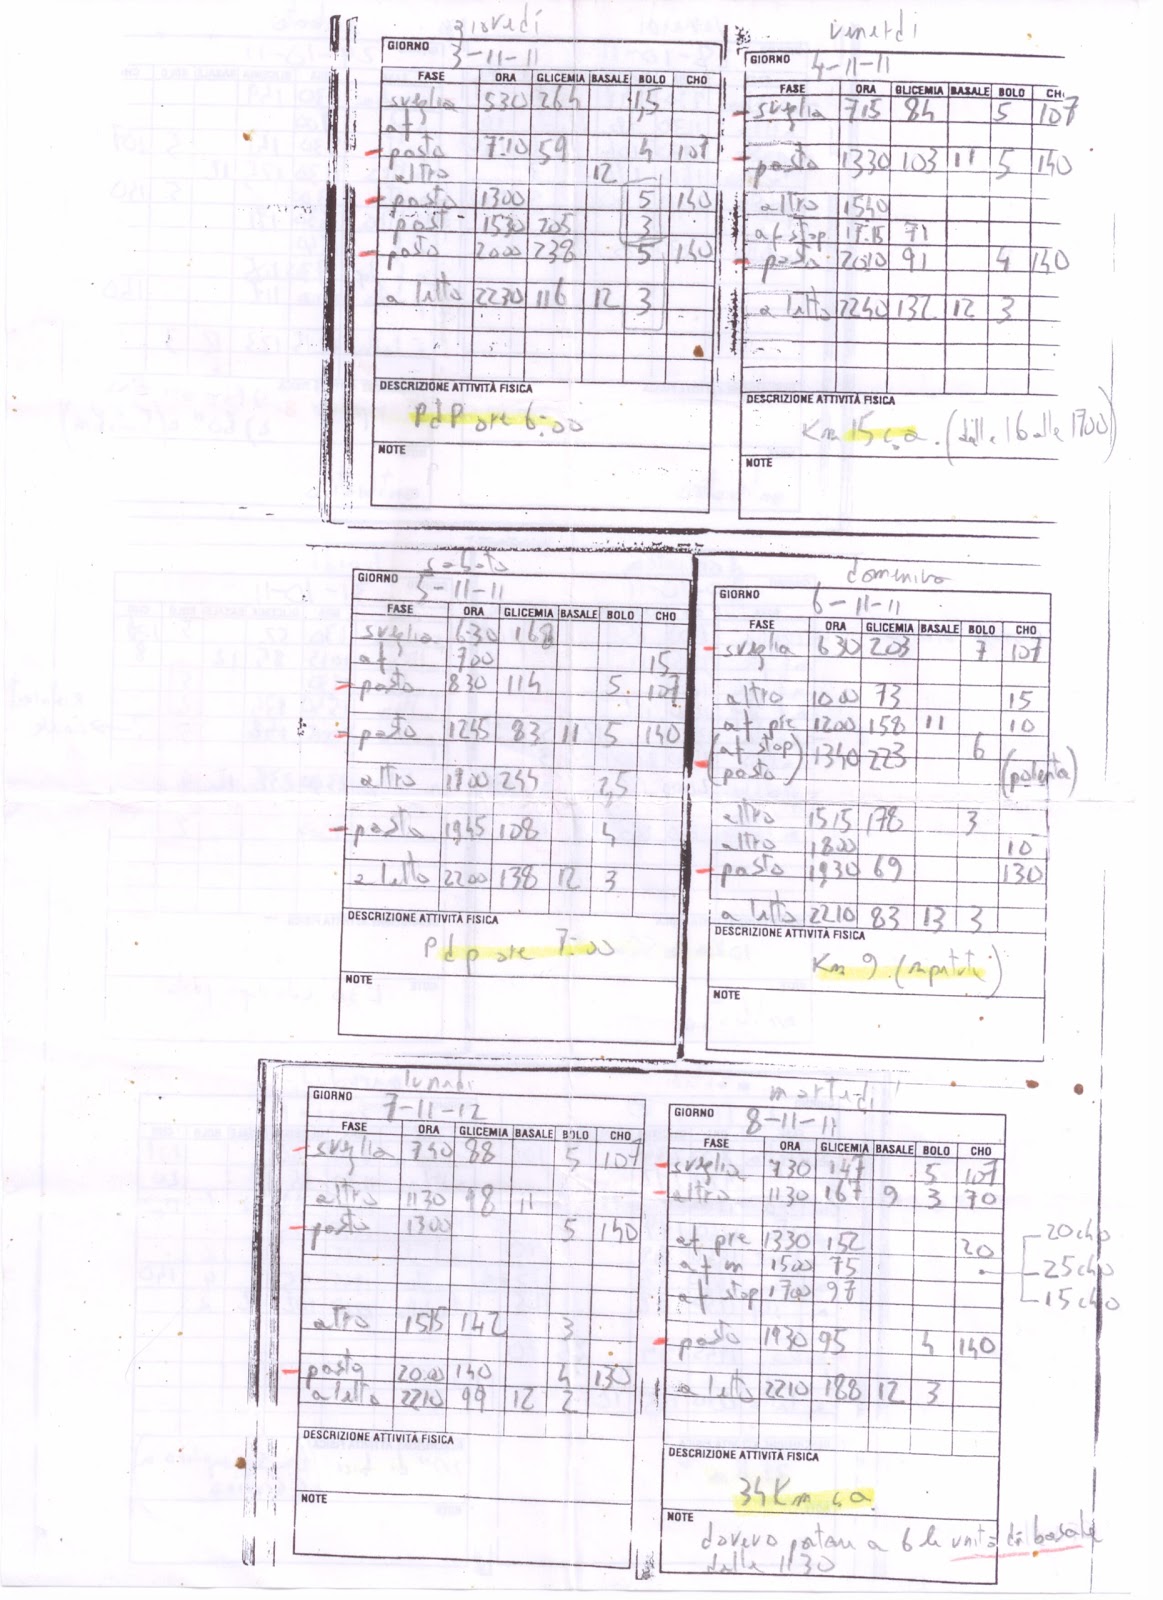 giovedí
GIORNO 3-11-11
FASE ORA GLICEMIA BASALE BOLO CHO
sveglia 530 264 1,5
af
pasto 710 59 4 107
altro 12
pasto 1300 5 140
post 1530 205 3
pasto 2000 238 5 140
a letto 2230 116 12 3
DESCRIZIONE ATTIVITÀ FISICA
PdP ore 6:00
NOTE
venerdí
GIORNO 4-11-11
FASE ORA GLICEMIA BASALE BOLO CHO
sveglia 715 84 5 107
pasto 1330 103 11 5 140
altro 1540
af stop 17.15 71
pasto 2010 91 4 140
a letto 2240 132 12 3
DESCRIZIONE ATTIVITÀ FISICA
Km 15 c.a. (dalle 16 alle 1700)
NOTE
sabato
GIORNO 5-11-11
FASE ORA GLICEMIA BASALE BOLO CHO
sveglia 630 168
af 700 15
pasto 830 114 5 107
pasto 1245 83 11 5 140
altro 1700 234 2,5
pasto 1945 108 4
a letto 2200 138 12 3
DESCRIZIONE ATTIVITÀ FISICA
Pdp ore 7:00
NOTE
domenica
GIORNO 6-11-11
FASE ORA GLICEMIA BASALE BOLO CHO
sveglia 630 203 7 107
altro 1000 73 15
af pre 1200 158 11 10
(af stop) 1340 223 6
(pasto) (polenta)
altro 1515 178 3
altro 1800 10
pasto 1930 69 130
a letto 2210 83 13 3
DESCRIZIONE ATTIVITÀ FISICA
Km 9 (ripetute)
NOTE
lunedi
GIORNO 7-11-12
FASE ORA GLICEMIA BASALE BOLO CHO
sveglia 740 88 5 107
altro 1130 98 11
pasto 1300 5 140
altro 1515 142 3
pasto 20.00 140 4 130
a letto 2210 99 12 2
DESCRIZIONE ATTIVITÀ FISICA
NOTE
martedi
GIORNO 8-11-11
FASE ORA GLICEMIA BASALE BOLO CHO
sveglia 730 147 5 107
altro 1130 167 9 3 70
af pre 1330 152 20
af m 1500 75
af stop 1700 97
20 cho
25 cho
15 cho
pasto 1930 95 4 140
a letto 2210 188 12 3
DESCRIZIONE ATTIVITÀ FISICA
34 Km c.a.
NOTE
dovevo portare a 6 le unità di basale
delle 1130